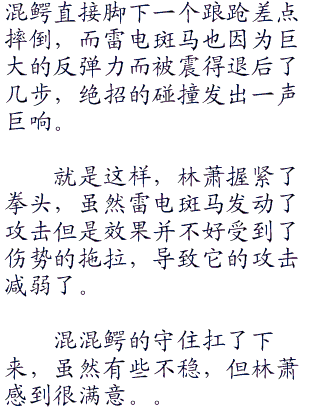 混鳄直接脚下一个踉跄差点
摔倒，而雷电斑马也因为巨
大的反弹力而被震得退后了
几步，绝招的碰撞发出一声
巨响。
就是这样，林萧握紧了
拳头，虽然雷电斑马发动了
攻击但是效果并不好受到了
伤势的拖拉，导致它的攻击
减弱了。
混混鳄的守住扛了下
来，虽然有些不稳，但林萧
感到很满意。。